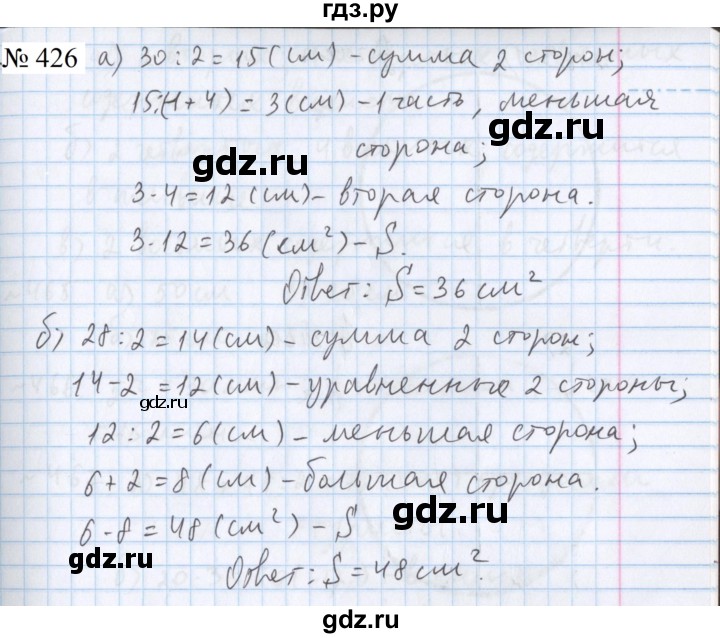 гдз.ру
№ 426 а) 30 : 2 = 15 (см) - сумма 2 сторон;
15:(1+4) = 3(см) - 1 часть, меньшая
gdz.ru gdz.ru
сторона;
3·4=12 (см) - вторая сторона.
3·12=36(см²) - S.
Ответ: S=36 см²
б) 28:2=14(см) - сумма 2 сторон;
14-2 =12(см) - уравненные 2 стороны;
gdz.ru
12:2=6(см) - меньшая сторона;
6+2=8(см) - большая сторона.
gdz.ru gdz.ru
6·8=48(см²) - S
Ответ: S=48см².
gdz.ru